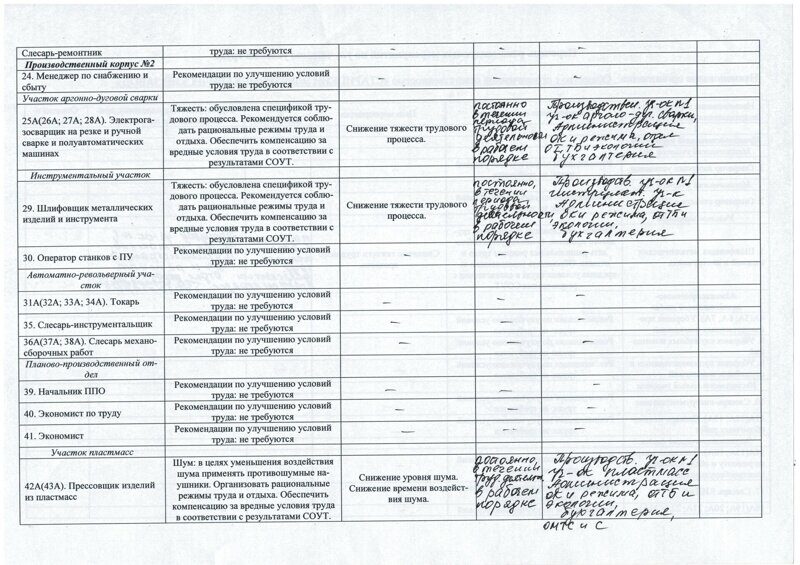 Слесарь-ремонтник
труда: не требуются
– – –
Производственный корпус №2
24. Менеджер по снабжению и
сбыту
Рекомендации по улучшению условий
труда: не требуются
– – –
Участок аргонно-дуговой сварки
25А(26А; 27А; 28А). Электрога-
зосварщик на резке и ручной
сварке и полуавтоматических
машинах
Тяжесть: обусловлена спецификой тру-
дового процесса. Рекомендуется соблю-
дать рациональные режимы труда и
отдыха. Обеспечить компенсацию за
вредные условия труда в соответствии с
результатами СОУТ.
Снижение тяжести трудового
процесса.
постоянно
в течении
периода
трудовой
деятельности
в рабочем
порядке
Производствен. уч-ок №1
уч-ок аргоно-дуг. сварки,
Администрация
ОК и режима, отдел
ОТ, ТБ и экологии
бухгалтерия
Инструментальный участок
29. Шлифовщик металлических
изделий и инструмента
Тяжесть: обусловлена спецификой тру-
дового процесса. Рекомендуется соблю-
дать рациональные режимы труда и
отдыха. Обеспечить компенсацию за
вредные условия труда в соответствии с
результатами СОУТ.
Снижение тяжести трудового
процесса.
постоянно,
в течении
периода
трудовой
деятельности
в рабочем
порядке
Производств. уч-ок №1
инструмент. уч-к
Администрации
ОК и режима, ОТБ и
экологии,
бухгалтерия
30. Оператор станков с ПУ
Рекомендации по улучшению условий
труда: не требуются
– – –
Автоматно-револьверный уча-
сток
31А(32А; 33А; 34А). Токарь
Рекомендации по улучшению условий
труда: не требуются
– – –
35. Слесарь-инструментальщик
Рекомендации по улучшению условий
труда: не требуются
– – –
36А(37А; 38А). Слесарь механо-
сборочных работ
Рекомендации по улучшению условий
труда: не требуются
– – –
Планово-производственный от-
дел
39. Начальник ППО
Рекомендации по улучшению условий
труда: не требуются
– – –
40. Экономист по труду
Рекомендации по улучшению условий
труда: не требуются
– – –
41. Экономист
Рекомендации по улучшению условий
труда: не требуются
– – –
Участок пластмасс
42А(43А). Прессовщик изделий
из пластмасс
Шум: в целях уменьшения воздействия
шума применять противошумные на-
ушники. Организовать рациональные
режимы труда и отдыха. Обеспечить
компенсацию за вредные условия труда
в соответствии с результатами СОУТ.
Снижение уровня шума.
Снижение времени воздейст-
вия шума.
постоянно,
в течении
в рабочем
порядке
Производств. уч-ок №1
уч-ок пластмасс
Администрация
ОК и режима, ОТБ и
экологии,
бухгалтерия,
ОМТС и С